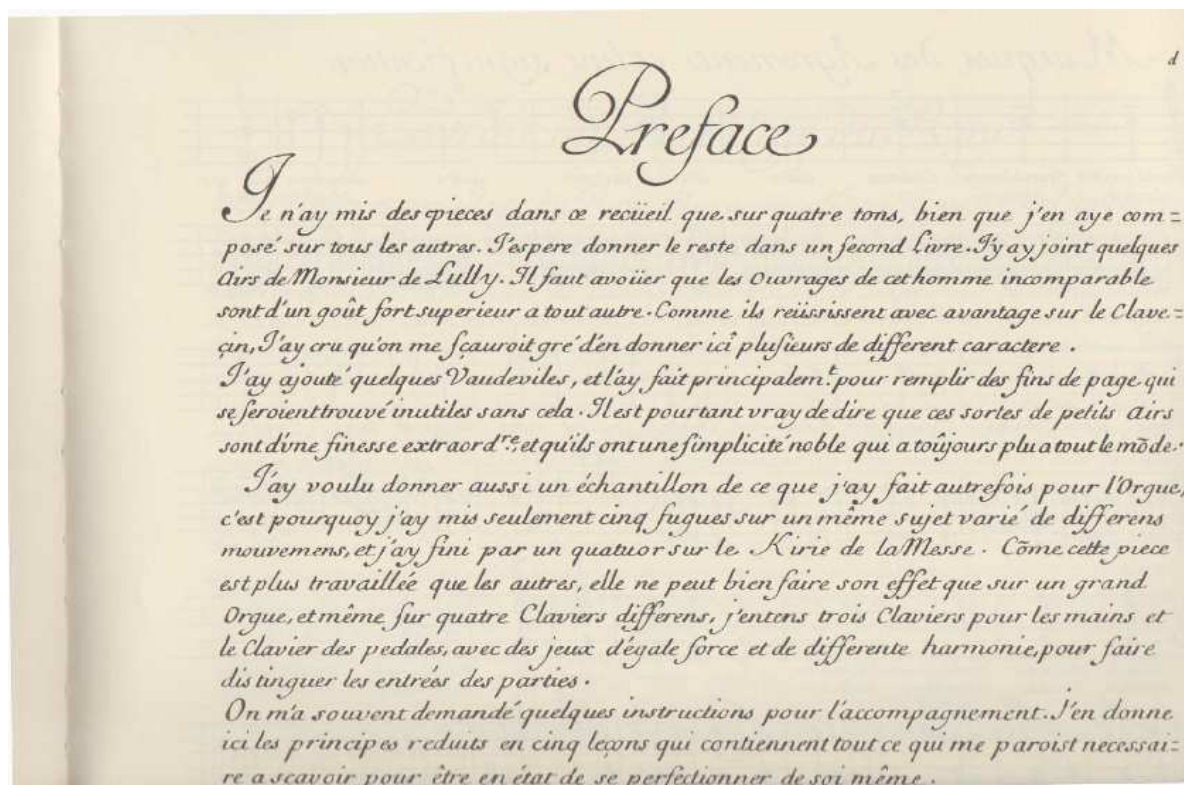 d
Preface
Je n'ay mis des pieces dans ce recüeil que sur quatre tons, bien que j'en aye com=
posé sur tous les autres. J'espere donner le reste dans un second Livre. J'y ay joint quelques
Airs de Monsieur de Lully. Il faut avoüer que les Ouvrages de cet homme incomparable
sont d'un goût fort superieur a tout autre. Comme ils reüssissent avec avantage sur le Clave=
çin, J'ay cru qu'on me sçauroit gré d'en donner ici plusieurs de different caractere.
J'ay ajouté quelques Vaudeviles, et l'ay fait principalem.t pour remplir des fins de page qui
se seroient trouvé inutiles sans cela. Il est pourtant vray de dire que ces sortes de petits Airs
sont d'vne finesse extraord.re, et qu'ils ont une simplicité noble qui a toûjours plu a tout le mõde.
J'ay voulu donner aussi un échantillon de ce que j'ay fait autrefois pour l'Orgue,
c'est pourquoy j'ay mis seulement cinq fugues sur un même sujet varié de differens
mouvemens, et j'ay fini par un quatuor sur le Kirie de la Messe. Cõme cette piece
est plus travaillée que les autres, elle ne peut bien faire son effet que sur un grand
Orgue, et même sur quatre Claviers differens, j'entens trois Claviers pour les mains et
le Clavier des pedales, avec des jeux d'égale force et de differente harmonie, pour faire
distinguer les entrées des parties.
On m'a souvent demandé quelques instructions pour l'accompagnement. J'en donne
ici les principes reduits en cinq leçons qui contiennent tout ce qui me paroist necessai=
re a scavoir pour être en état de se perfectionner de soi même.